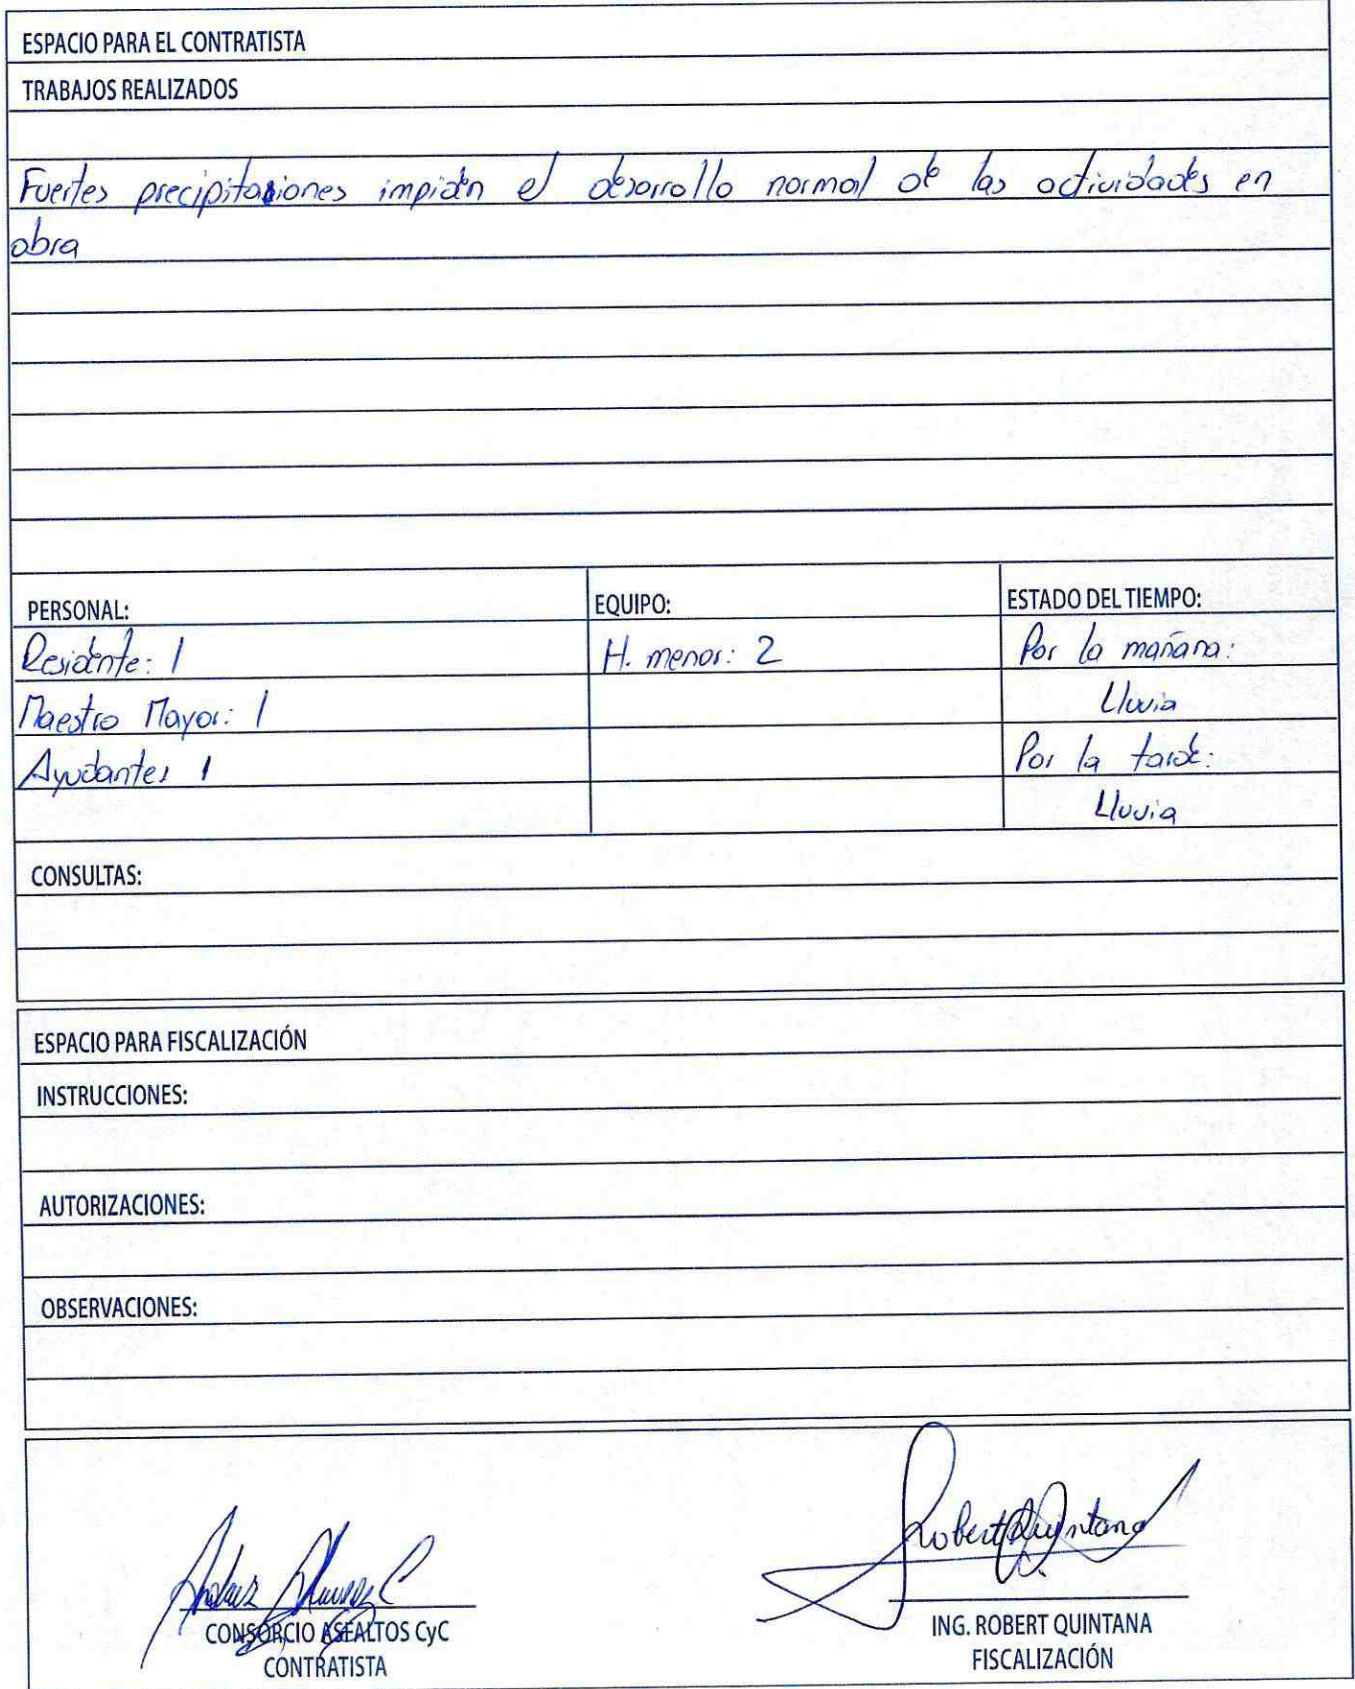 ESPACIO PARA EL CONTRATISTA
TRABAJOS REALIZADOS
Fuertes precipitasiones impiden el desarrollo normal de las actividades en
obra
PERSONAL:
Residente: 1
Maestro Mayor: 1
Ayudantes 1
EQUIPO:
H. menor: 2
ESTADO DEL TIEMPO:
Por la mañana:
Lluvia
Por la tarde:
Lluvia
CONSULTAS:
ESPACIO PARA FISCALIZACIÓN
INSTRUCCIONES:
AUTORIZACIONES:
OBSERVACIONES:
CONSORCIO ASFALTOS CyC
CONTRATISTA
Robert Quintana
ING. ROBERT QUINTANA
FISCALIZACIÓN